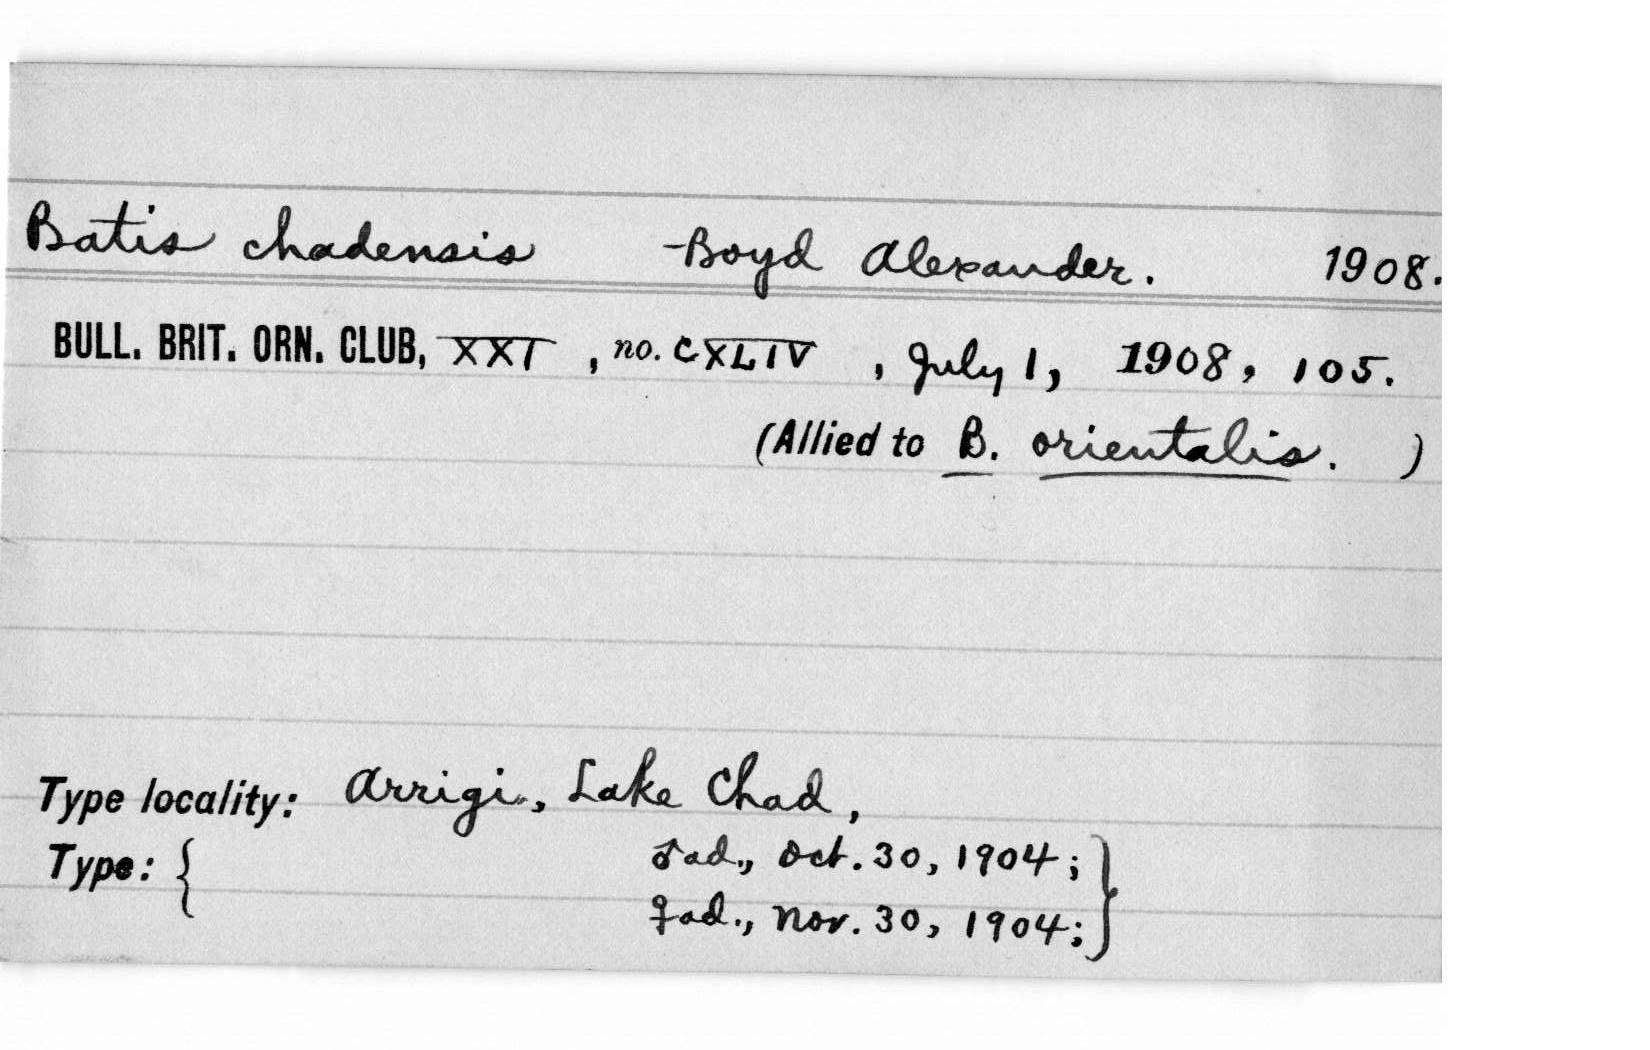 Batis chadensis Boyd Alexander. 1908.
BULL. BRIT. ORN. CLUB, XXI, no. CXLIV, July 1, 1908, 105.
(Allied to B. orientalis. )
Type locality: Arrigi, Lake Chad,
Type: { ♂ad., Oct. 30, 1904; }
♀ad., Nov. 30, 1904;